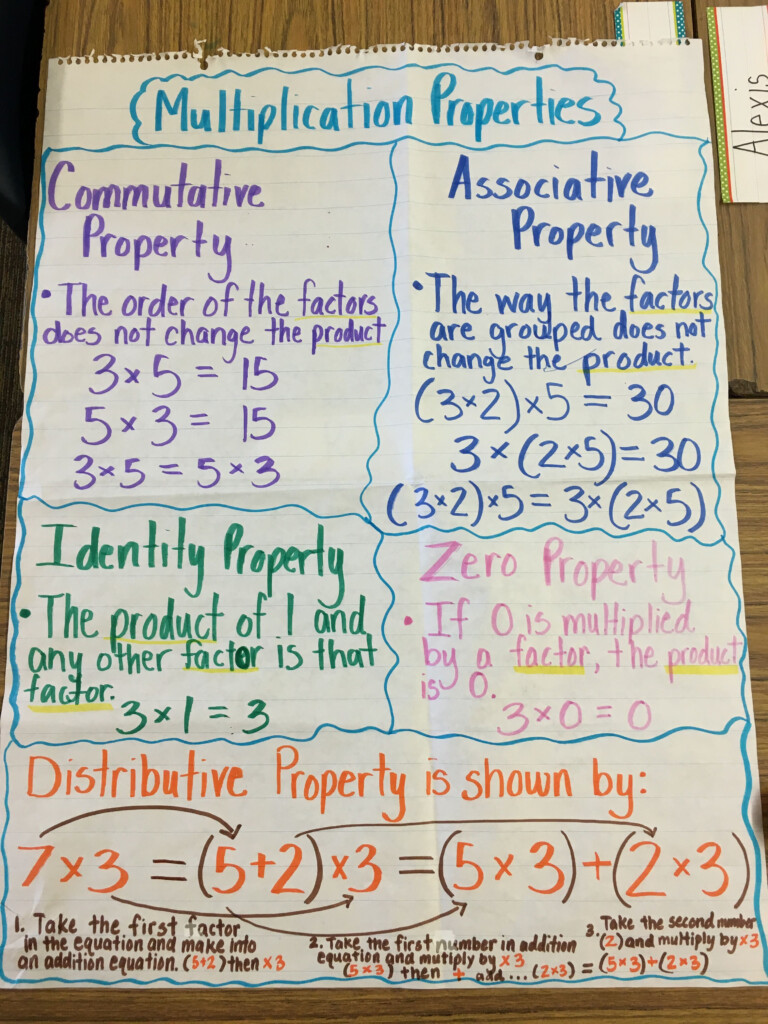 Multiplication Properties
Alexis
Commutative
Property
• The order of the factors
does not change the product
3×5 = 15
5×3 = 15
3×5 = 5×3
Associative
Property
• The way the factors
are grouped does not
change the product.
(3×2)×5 = 30
3×(2×5)=30
(3×2)×5=3×(2×5)
Identity Property
• The product of 1 and
any other factor is that
factor.
3×1=3
Zero Property
• If 0 is multiplied
by a factor, the product
is 0.
3×0=0
Distributive Property is shown by:
7×3 =(5+2)×3 =(5×3)+(2×3)
1. Take the first factor
in the equation and make into
an addition equation. (5+2) then ×3
2. Take the first number in addition
equation and mutiply by ×3
(5×3) then + add... (2×3)
3. Take the second number
(2) and multiply by ×3
=(5×3)+(2×3)